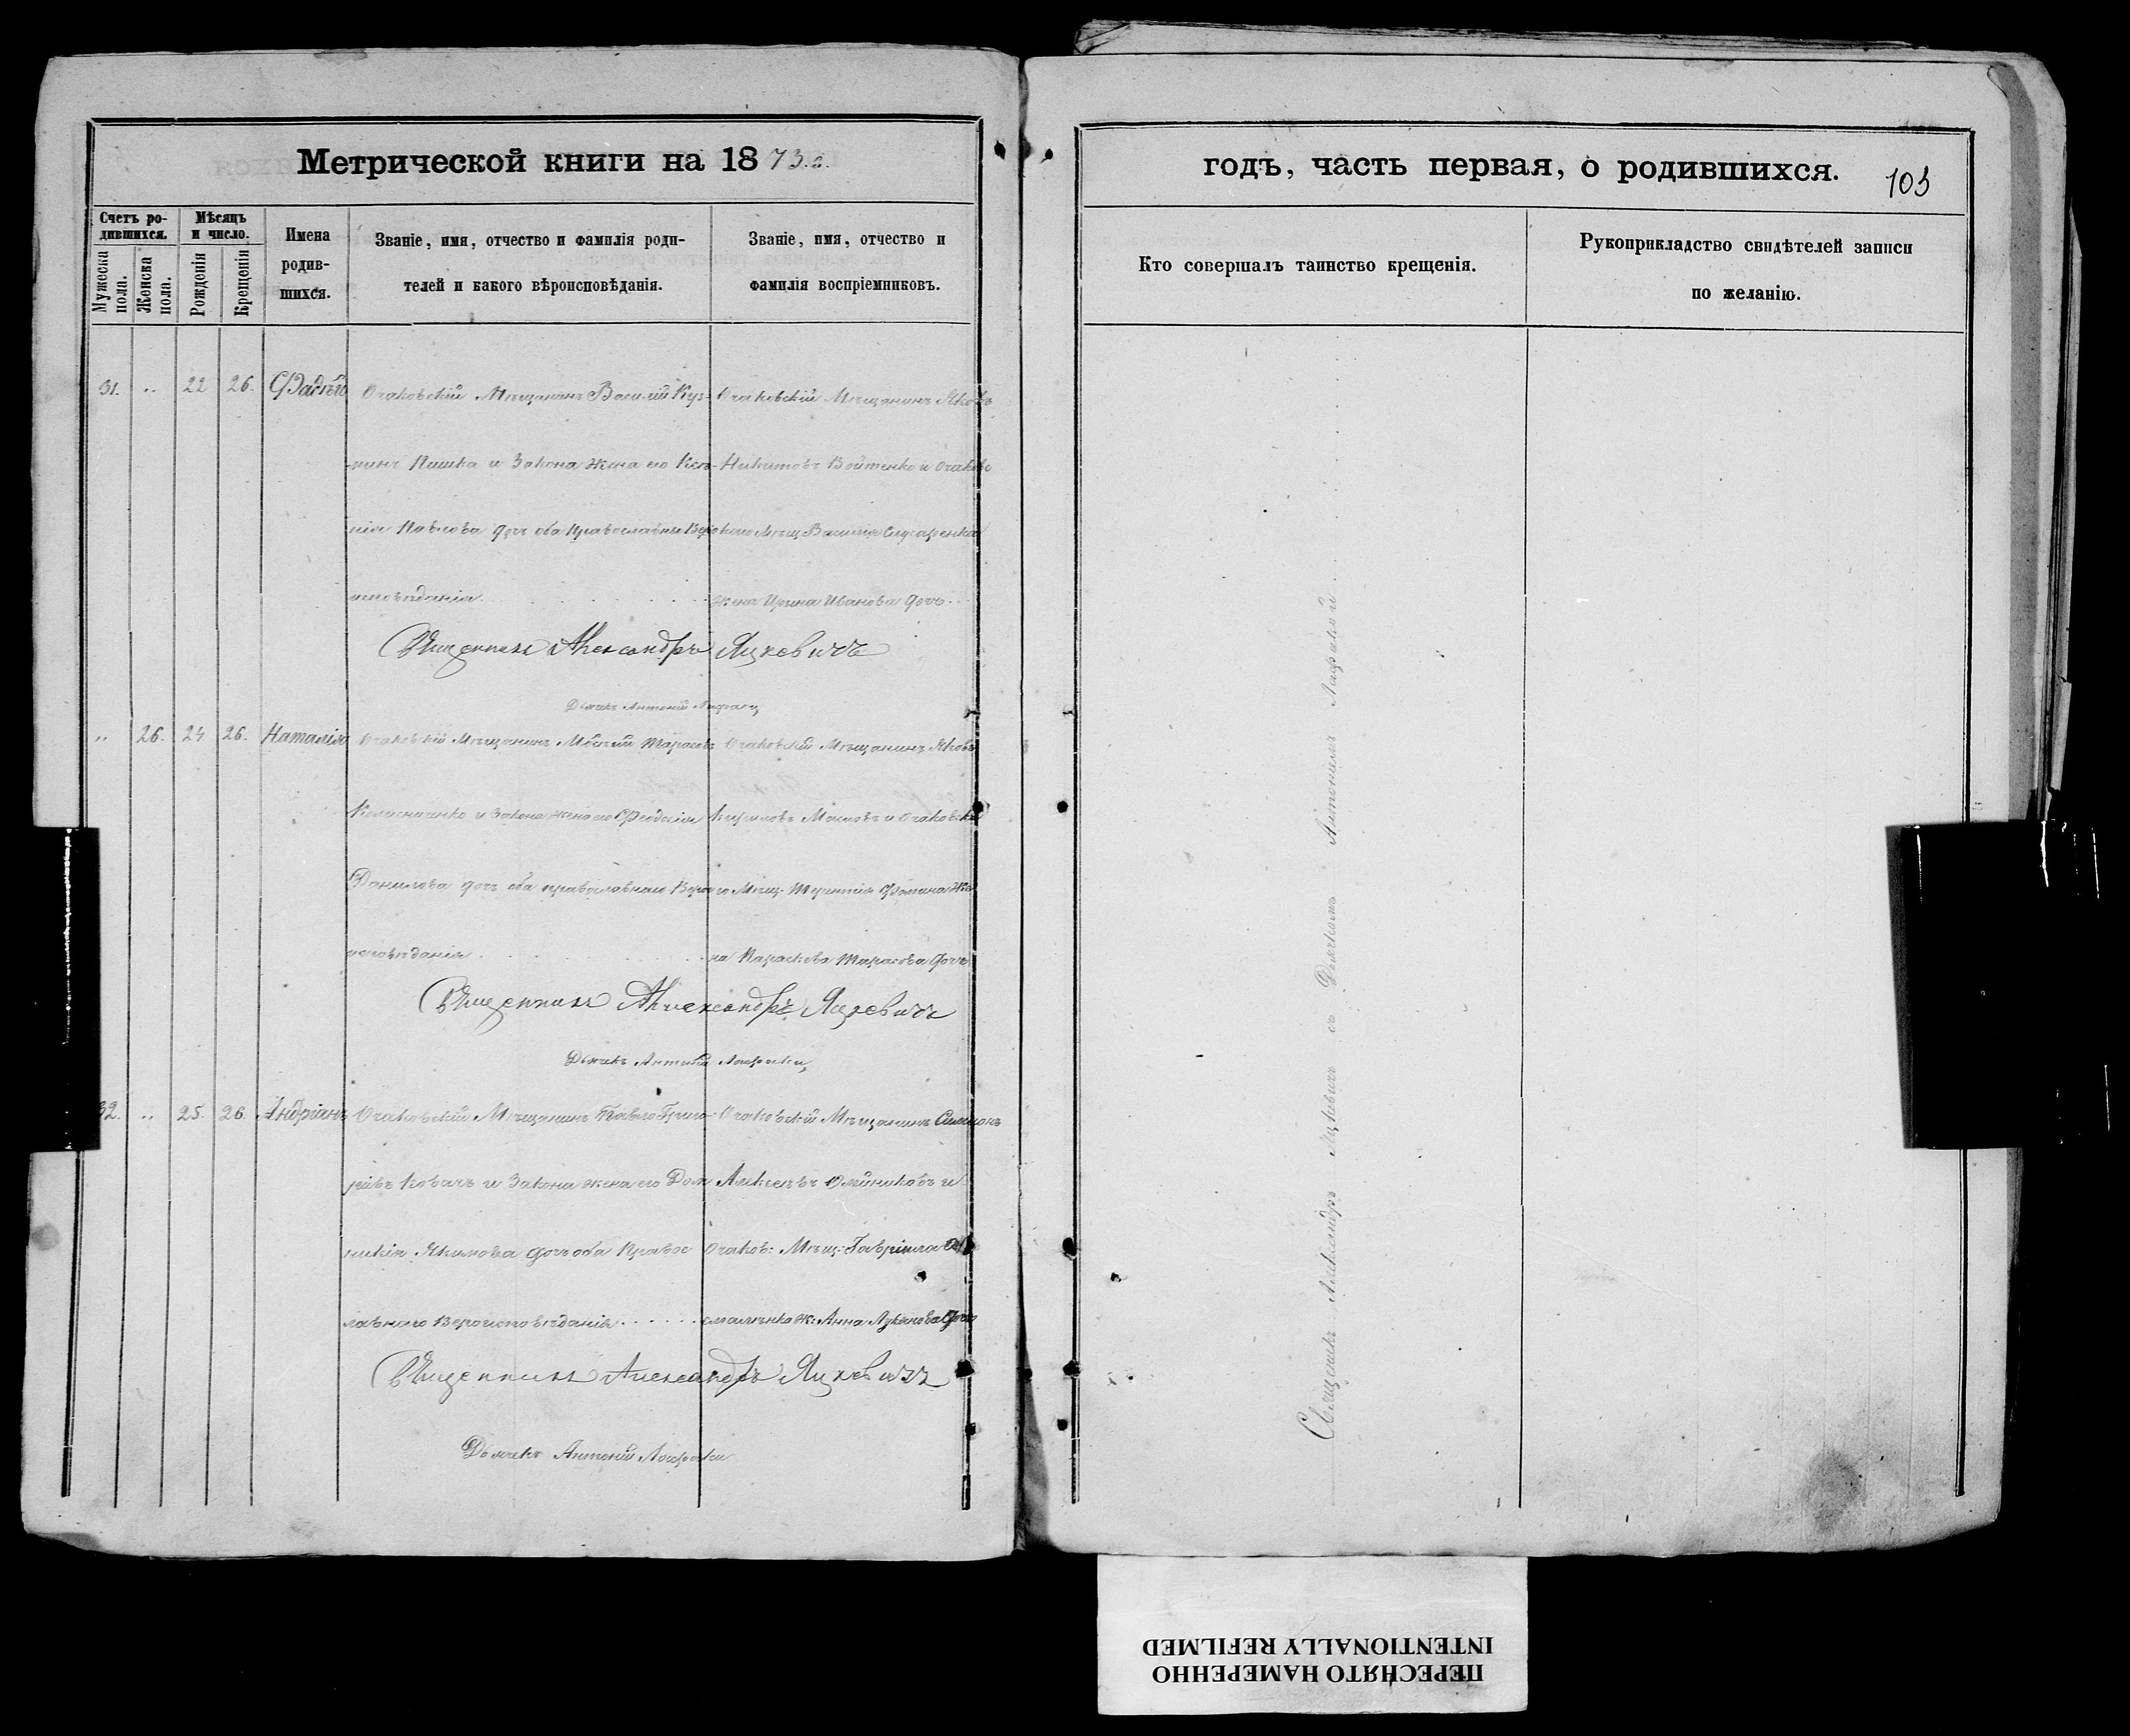 Метрической книги на 1873 г.
Счетъ ро-
дившихся.
Мужеска
пола.
Женска
пола.
Мѣсяцъ
и число.
Рожденія
Крещенія
Имена
родив-
шихся.
Званіе, имя, отчество и фамилія роди-
телей и какого вѣроисповѣданія.
Званіе, имя, отчество и
фамилія воспріемниковъ.
31. .. 22 26. Фадѣй
Очаковскій Мѣщанинъ Василій Кузь-
минъ Пишка и Закона жена его Ксе-
нія Павлова доч оба Православнаго Веро
исповѣданія
Очаковскій Мѣщанинъ Яковъ
Никитовъ Войтенко и Очаков
скаго Мѣщ Василія Слусаренка
жена Ирина Иванова дочь
Священникъ Александръ Яцкевичъ
Дьячекъ Антоній
.. 26. 24 26. Наталія
Очаковскій Мѣщанинъ Моисей Тарасовъ
Колисниченко и Закона жена его Феодосія
Данилова доч оба православнаго Веро
исповѣданія
Очаковскій Мѣщанинъ Яковъ
Кириловъ и Очаковска
го Мѣщ Терентія Фомина Же
на Параскева Тарасова дочь
Священникъ Александръ Яцкевичъ
Дьячекъ Антоній
32. .. 25. 26. Андріанъ
Очаковскій Мѣщанинъ Павло Григо-
рівъ Ковачъ и Закона жена его Дом
никія Якимова дочь оба Правос
лавнаго Вероисповѣданія
Очаковскій Мѣщанинъ Симеонъ
Алексѣевъ Олейниковъ и
Очаков: Мѣщ: Гавріила
ж: Анна Лукьянова дочь
Священникъ Александръ Яцкевичъ
Дьячекъ Антоній
годъ, часть первая, о родившихся.
103
Кто совершалъ таинство крещенія.
Рукоприкладство свидѣтелей записи
по желанію.
Священникъ Александръ Яцкевичъ съ Дьячкомъ Антоніемъ
ПЕРЕСНЯТО НАМЕРЕННО
INTENTIONALLY REFILMED